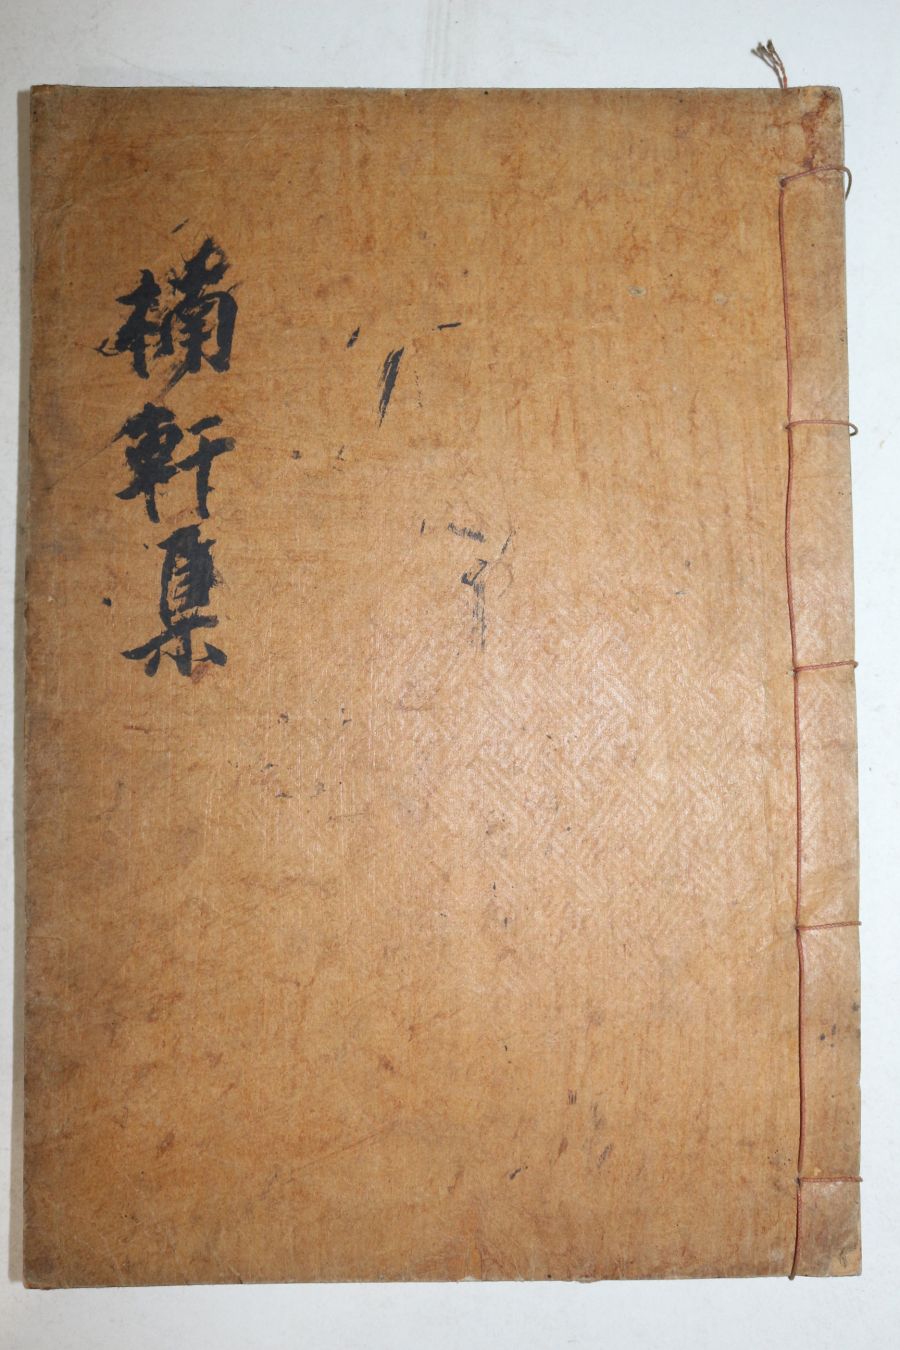 楠軒集